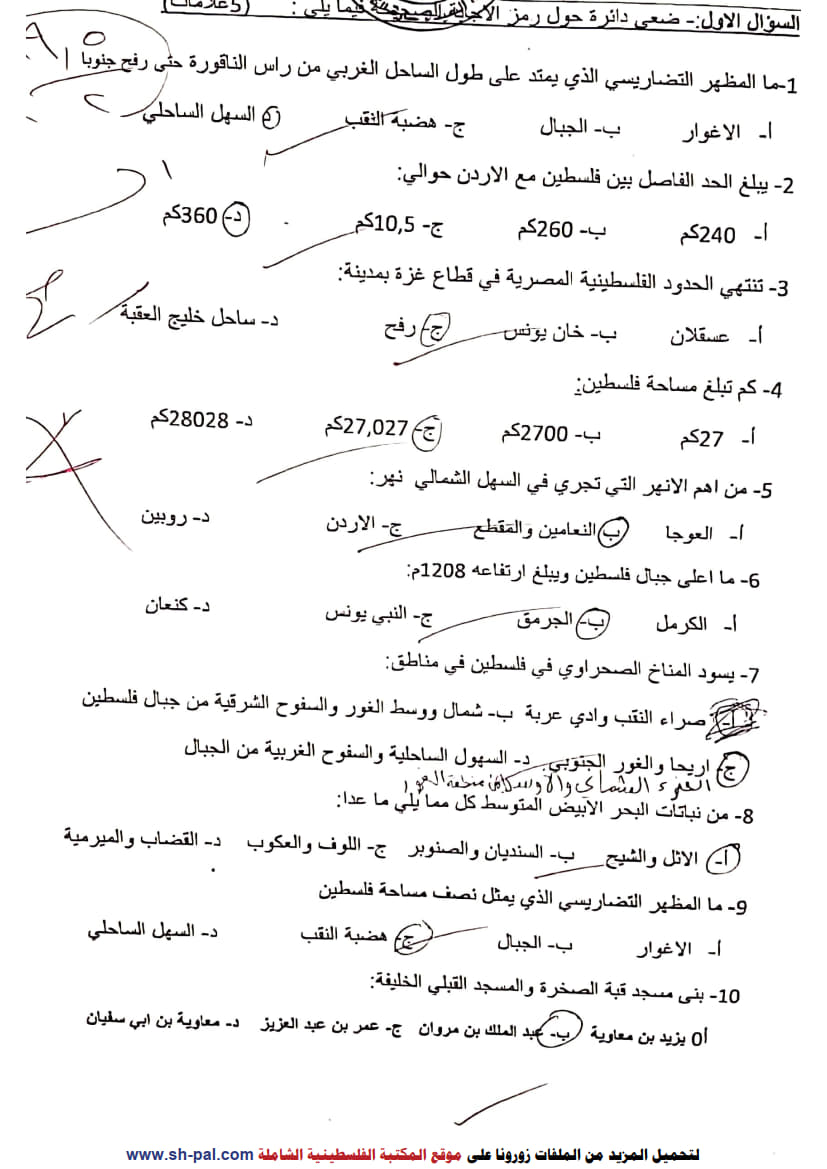 السؤال الاول:- ضعي دائرة حول رمز الاجابة الصحيحة فيما يلي : (5علامات)
1-ما المظهر التضاريسي الذي يمتد على طول الساحل الغربي من راس الناقورة حتى رفح جنوبا
أ- الاغوار ب- الجبال ج- هضبة النقب د السهل الساحلي
2- يبلغ الحد الفاصل بين فلسطين مع الاردن حوالي:
أ- 240كم ب- 260كم ج- 10,5كم د- 360كم
3- تنتهي الحدود الفلسطينية المصرية في قطاع غزة بمدينة:
أ- عسقلان ب- خان يونس ج- رفح د- ساحل خليج العقبة
4- كم تبلغ مساحة فلسطين:
أ- 27كم ب- 2700كم ج- 27,027كم د- 28028كم
5- من اهم الانهر التي تجري في السهل الشمالي نهر:
أ- العوجا ب النعامين والمقطع ج- الاردن د- روبين
6- ما اعلى جبال فلسطين ويبلغ ارتفاعه 1208م:
أ- الكرمل ب- الجرمق ج- النبي يونس د- كنعان
7- يسود المناخ الصحراوي في فلسطين في مناطق:
أ- صراء النقب وادي عربة ب- شمال ووسط الغور والسفوح الشرقية من جبال فلسطين
ج- اريحا والغور الجنوبي د- السهول الساحلية والسفوح الغربية من الجبال
منطقة
8- من نباتات البحر الأبيض المتوسط كل مما يلي ما عدا:
أ- الاثل والشيح ب- السنديان والصنوبر ج- اللوف والعكوب د- القضاب والميرمية
9- ما المظهر التضاريسي الذي يمثل نصف مساحة فلسطين
أ- الاغوار ب- الجبال ج- هضبة النقب د- السهل الساحلي
10- بنى مسجد قبة الصخرة والمسجد القبلي الخليفة:
أ0 يزيد بن معاوية ب- عبد الملك بن مروان ج- عمر بن عبد العزيز د- معاوية بن ابي سفيان
لتحميل المزيد من الملفات زورونا على موقع المكتبة الفلسطينية الشاملة www.sh-pal.com